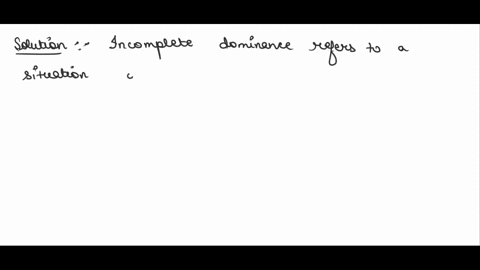 Solution :- Incomplete dominence refers to a
situation